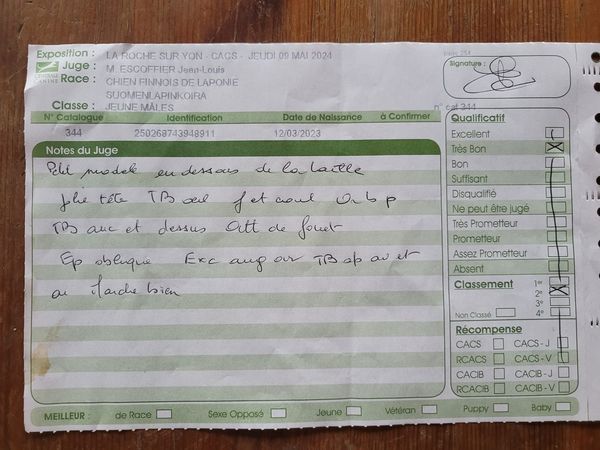 Exposition : LA ROCHE SUR YON - CACS - JEUDI 09 MAI 2024
Juge : M. ESCOFFIER Jean-Louis
Race : CHIEN FINNOIS DE LAPONIE
SUOMENLAPINKOIRA
Classe : JEUNE MÂLES
Signature :
n° cat 344
N° Catalogue Identification Date de Naissance à Confirmer
344 250268743948911 12/03/2023
Notes du Juge
Petit modèle en dessous de la taille
jolie tête TB oeil f et
TB anc et dessus Att de fouet
Ep oblique Exc ang TB ap av et
ar Marche bien
Qualificatif
Excellent
Très Bon
Bon
Suffisant
Disqualifié
Ne peut être jugé
Très Prometteur
Prometteur
Assez Prometteur
Absent
Classement 1er
2e
3e
Non Classé 4e
Récompense
CACS CACS - J
RCACS CACS - V
CACIB CACIB - J
RCACIB CACIB - V
MEILLEUR : de Race Sexe Opposé Jeune Vétéran Puppy Baby